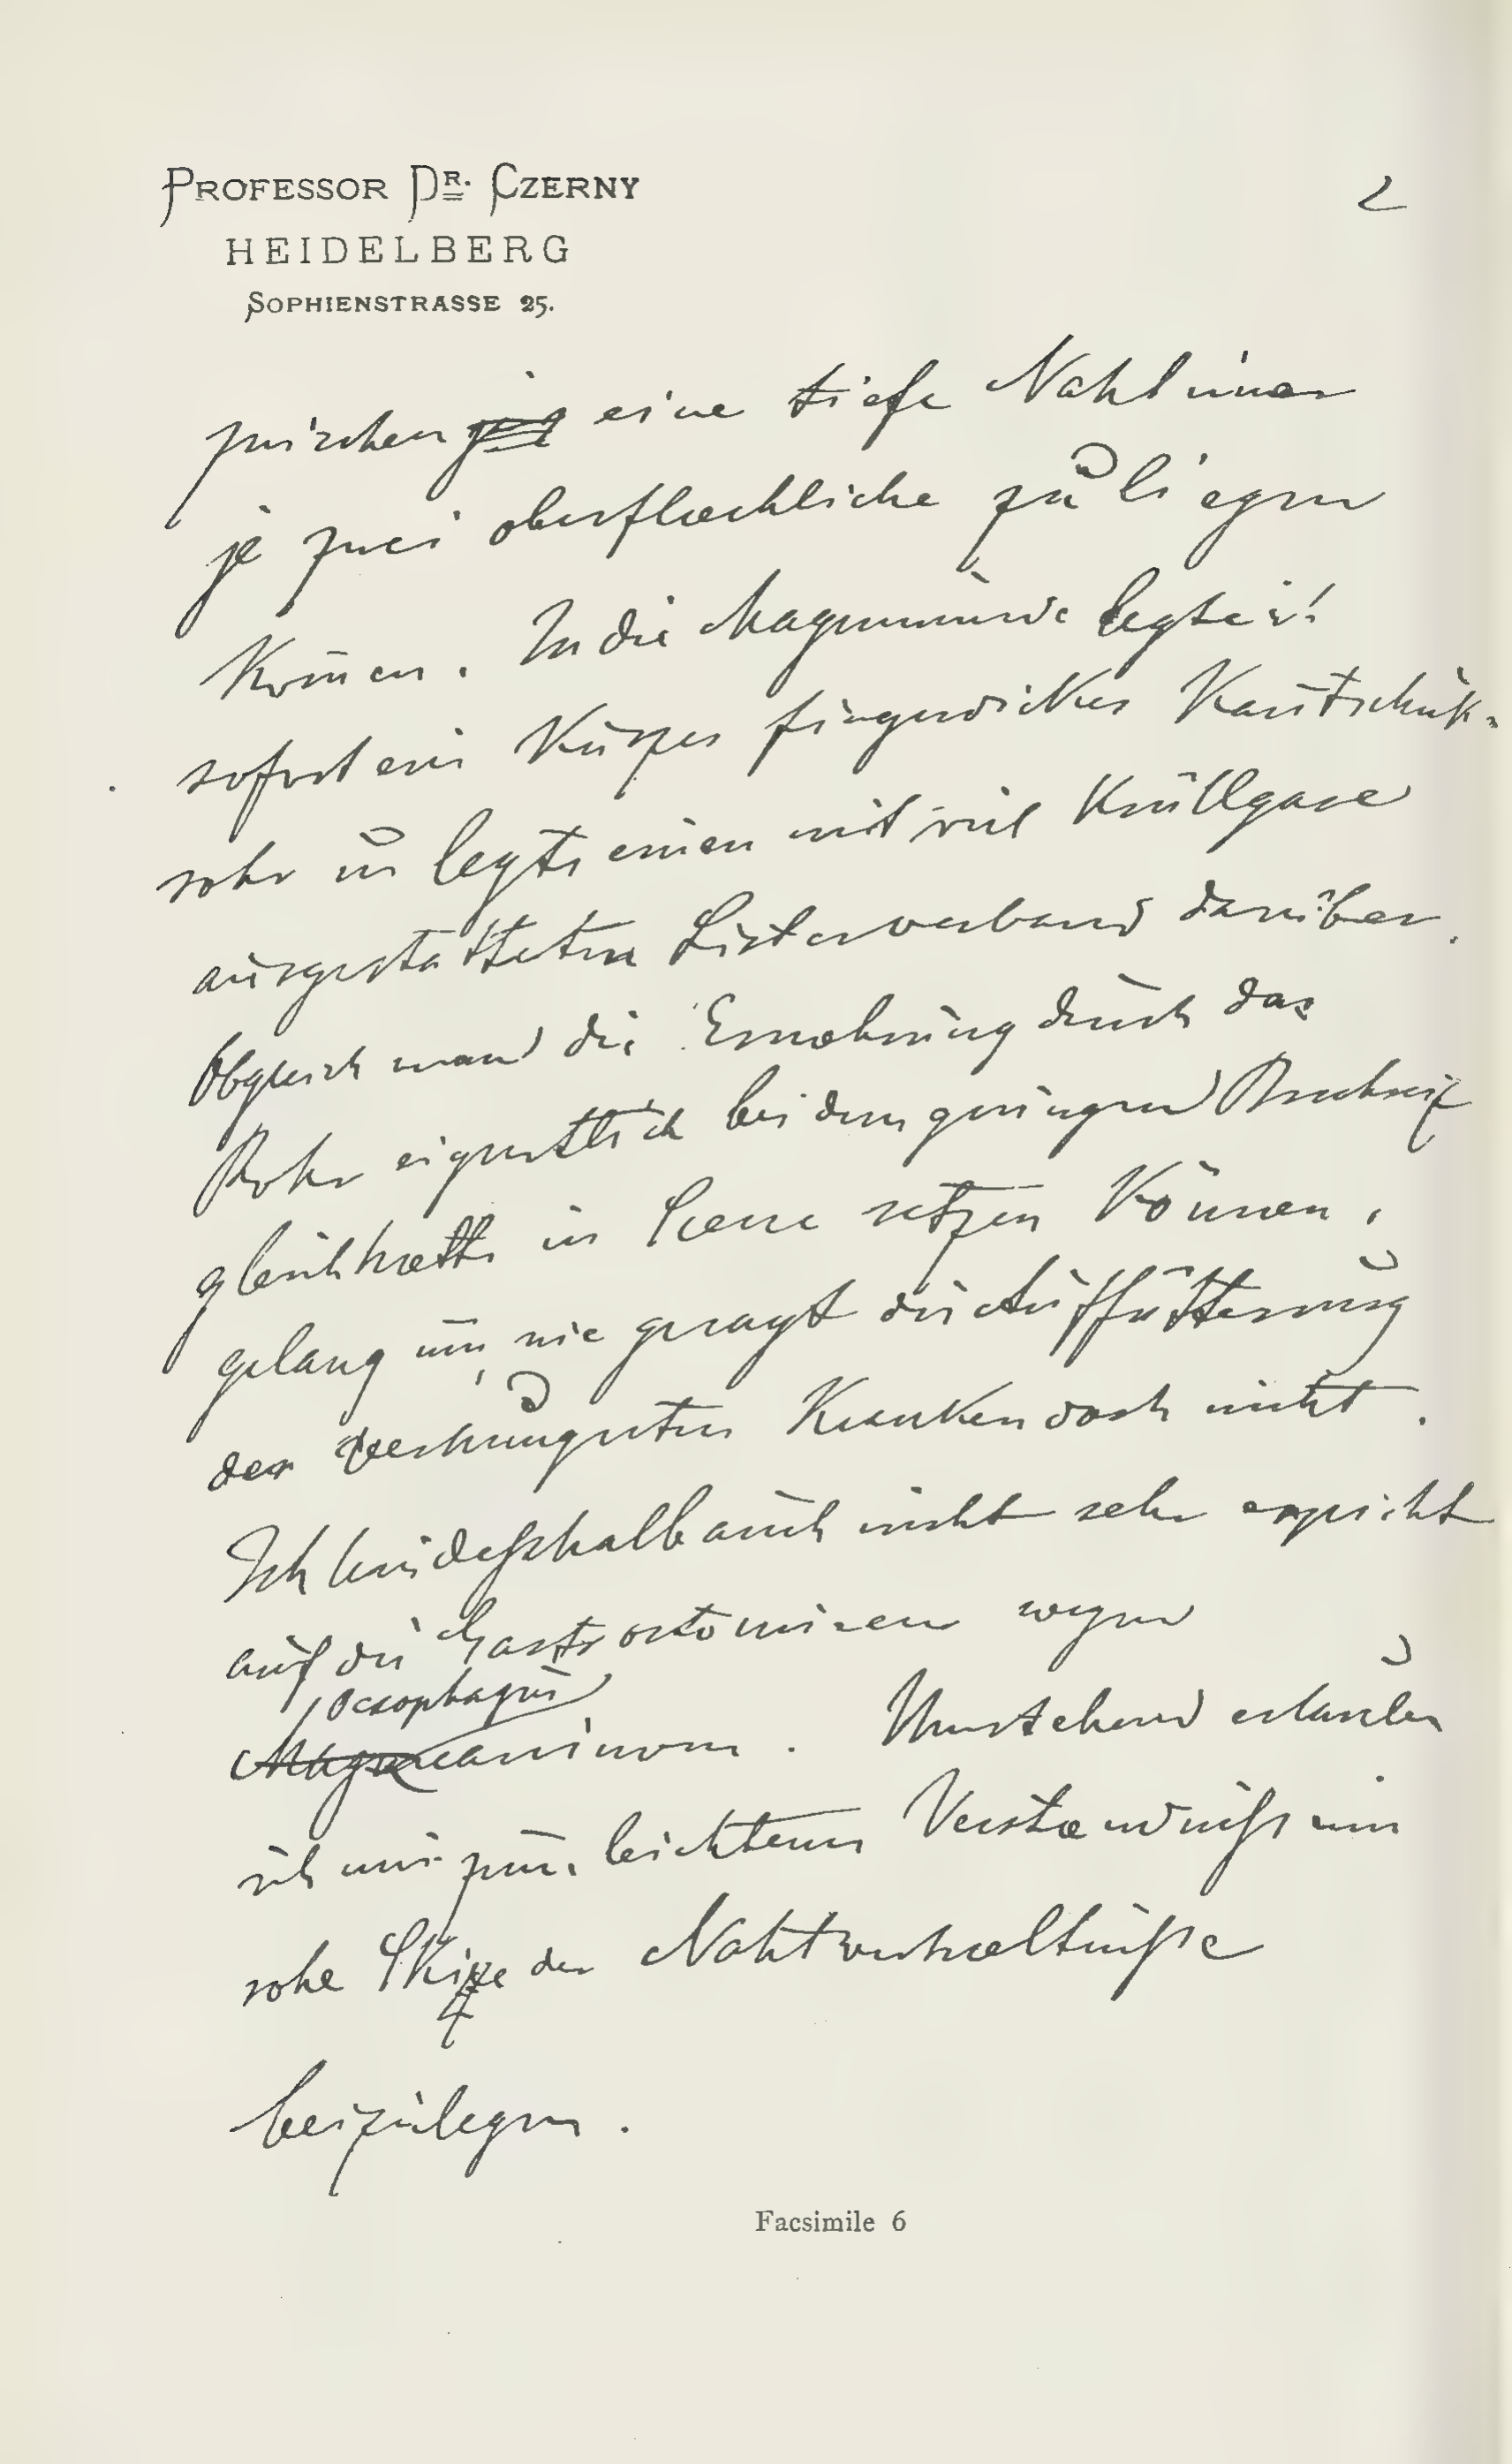 PROFESSOR DR. CZERNY
2
HEIDELBERG
SOPHIENSTRASSE 25.
zwischen eine tiefe Naht immer
je zwei oberflaechliche zu liegen
kom̄en. In die Magenwunde legte ich
sofort ein kurzes fingerdickes Kautschuk-
rohr u legte einen mit viel Krüllgaze
ausgestatteten Listerverband darüber.
Obgleich man die Ernaehrung durch das
Rohr eigentlich bei dem geringen Brechreiz
gleich haette in Scene setzen können,
gelang uns, wie gesagt die Auffütterung
der verhungerten Kranken doch nicht.
Ich bin deßhalb auch nicht sehr erpicht
auf die Gastrostomieen wegen
Oesophagus
carcinom. Umstehend erlaube
ich mir zum leichteren Verstaendniß eine
rohe Skizze der Nahtverhaeltniße
beizulegen.
Facsimile 6